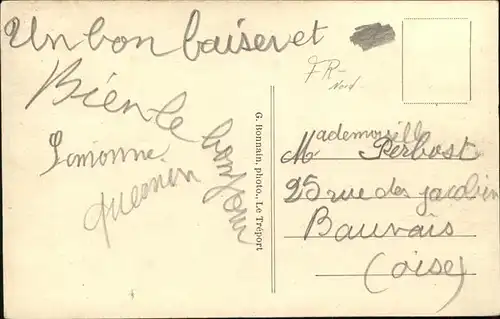 Un bon baiser et
Bien le bonjour
Simonne
quesnen
G. Bonnain, photo., Le Tréport
FR-
Nord
Mademoiselle
M Perbost
25 rue des jacobin
Bauvais
(oise)